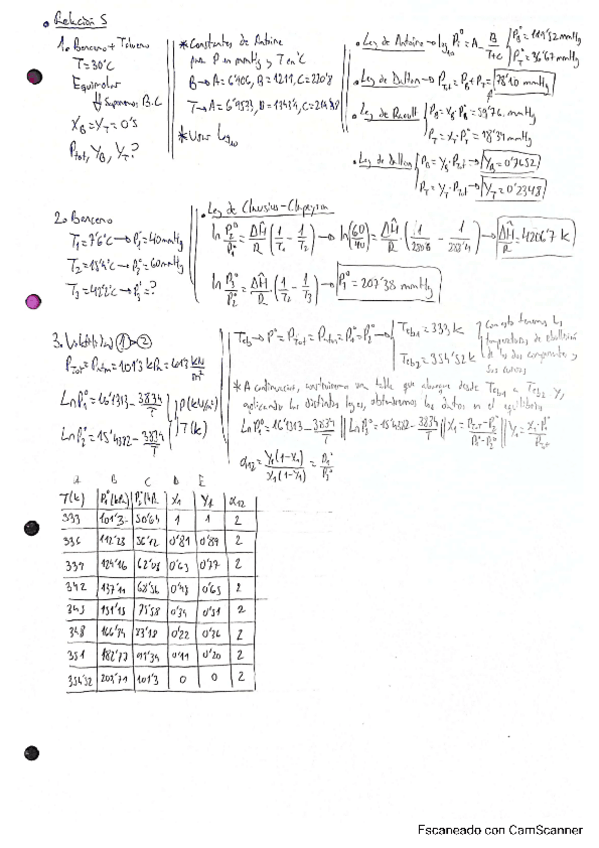 • Relación 5
1. Benceno + Tolueno
T = 30°C
Equimolar
↓ Suponemos B.C
X_B = Y_T = 0'5
P_tot, Y_B, Y_T?
* Constantes de Antoine
para P en mmHg y T en °C
B → A = 6'906, B = 1211, C = 220'8
T → A = 6'9533, B = 1343'9, C = 219'38
* Usar Log₁₀
• Ley de Antoine → log₁₀ P_i° = A - B/(T+C) { P_B° = 119'52 mmHg
P_T° = 36'67 mmHg
• Ley de Dalton → P_tot = P_B + P_T = 78'10 mmHg
• Ley de Raoult { P_B = X_B · P_B° = 59'76 mmHg
P_T = X_T · P_T° = 18'34 mmHg
• Ley de Dalton { P_B = Y_B · P_tot → Y_B = 0'7652
P_T = Y_T · P_tot → Y_T = 0'2348
2. Benceno
T₁ = 7'6°C → P₁° = 40 mmHg
T₂ = 15'4°C → P₂° = 60 mmHg
T₃ = 42'2°C → P₃° = ?
• Ley de Clausius-Clapeyron
ln P₂°/P₁° = ΔĤ/R (1/T₁ - 1/T₂) → ln(60/40) = ΔĤ/R · (1/280'6 - 1/288'4) → ΔĤ/R = 4206'7 K
ln P₃°/P₂° = ΔĤ/R (1/T₂ - 1/T₃) → P₃° = 207'38 mmHg
3. Volátiles ① > ②
P_tot = P_atm = 101'3 kPa = 101'3 kN/m²
Ln P₁° = 16'1313 - 3834/T } P (kN/m²)
Ln P₂° = 15'4382 - 3834/T } T (K)
T_eb → P° = P_tot = P_atm = P₁° = P₂° { T_eb₁ = 333 K
T_eb₂ = 354'52 K
Con esto tenemos las
temperaturas de ebullición
de los dos componentes y
sus curvas
* A continuación, construimos una tabla que abarque desde T_eb₁ a T_eb₂ y,
aplicando las distintas leyes, obtendremos los datos en el equilibrio
Ln P₁° = 16'1313 - 3834/T || Ln P₂° = 15'4382 - 3834/T || X₁ = (P_tot - P₂°)/(P₁° - P₂°) || Y₁ = X₁·P₁°/P_tot
α₁₂ = Y₁(1-X₁)/X₁(1-Y₁) = P₁°/P₂°
A B C D E
T(K) P₁°(kPa) P₂°(kPa) X₁ Y₁ α₁₂
333 101'3 50'65 1 1 2
336 112'23 56'12 0'81 0'89 2
339 124'16 62'08 0'63 0'77 2
342 137'11 68'56 0'48 0'65 2
345 151'15 75'58 0'34 0'51 2
348 166'34 83'18 0'22 0'36 2
351 182'77 91'39 0'11 0'20 2
354'52 202'71 101'3 0 0 2
Escaneado con CamScanner